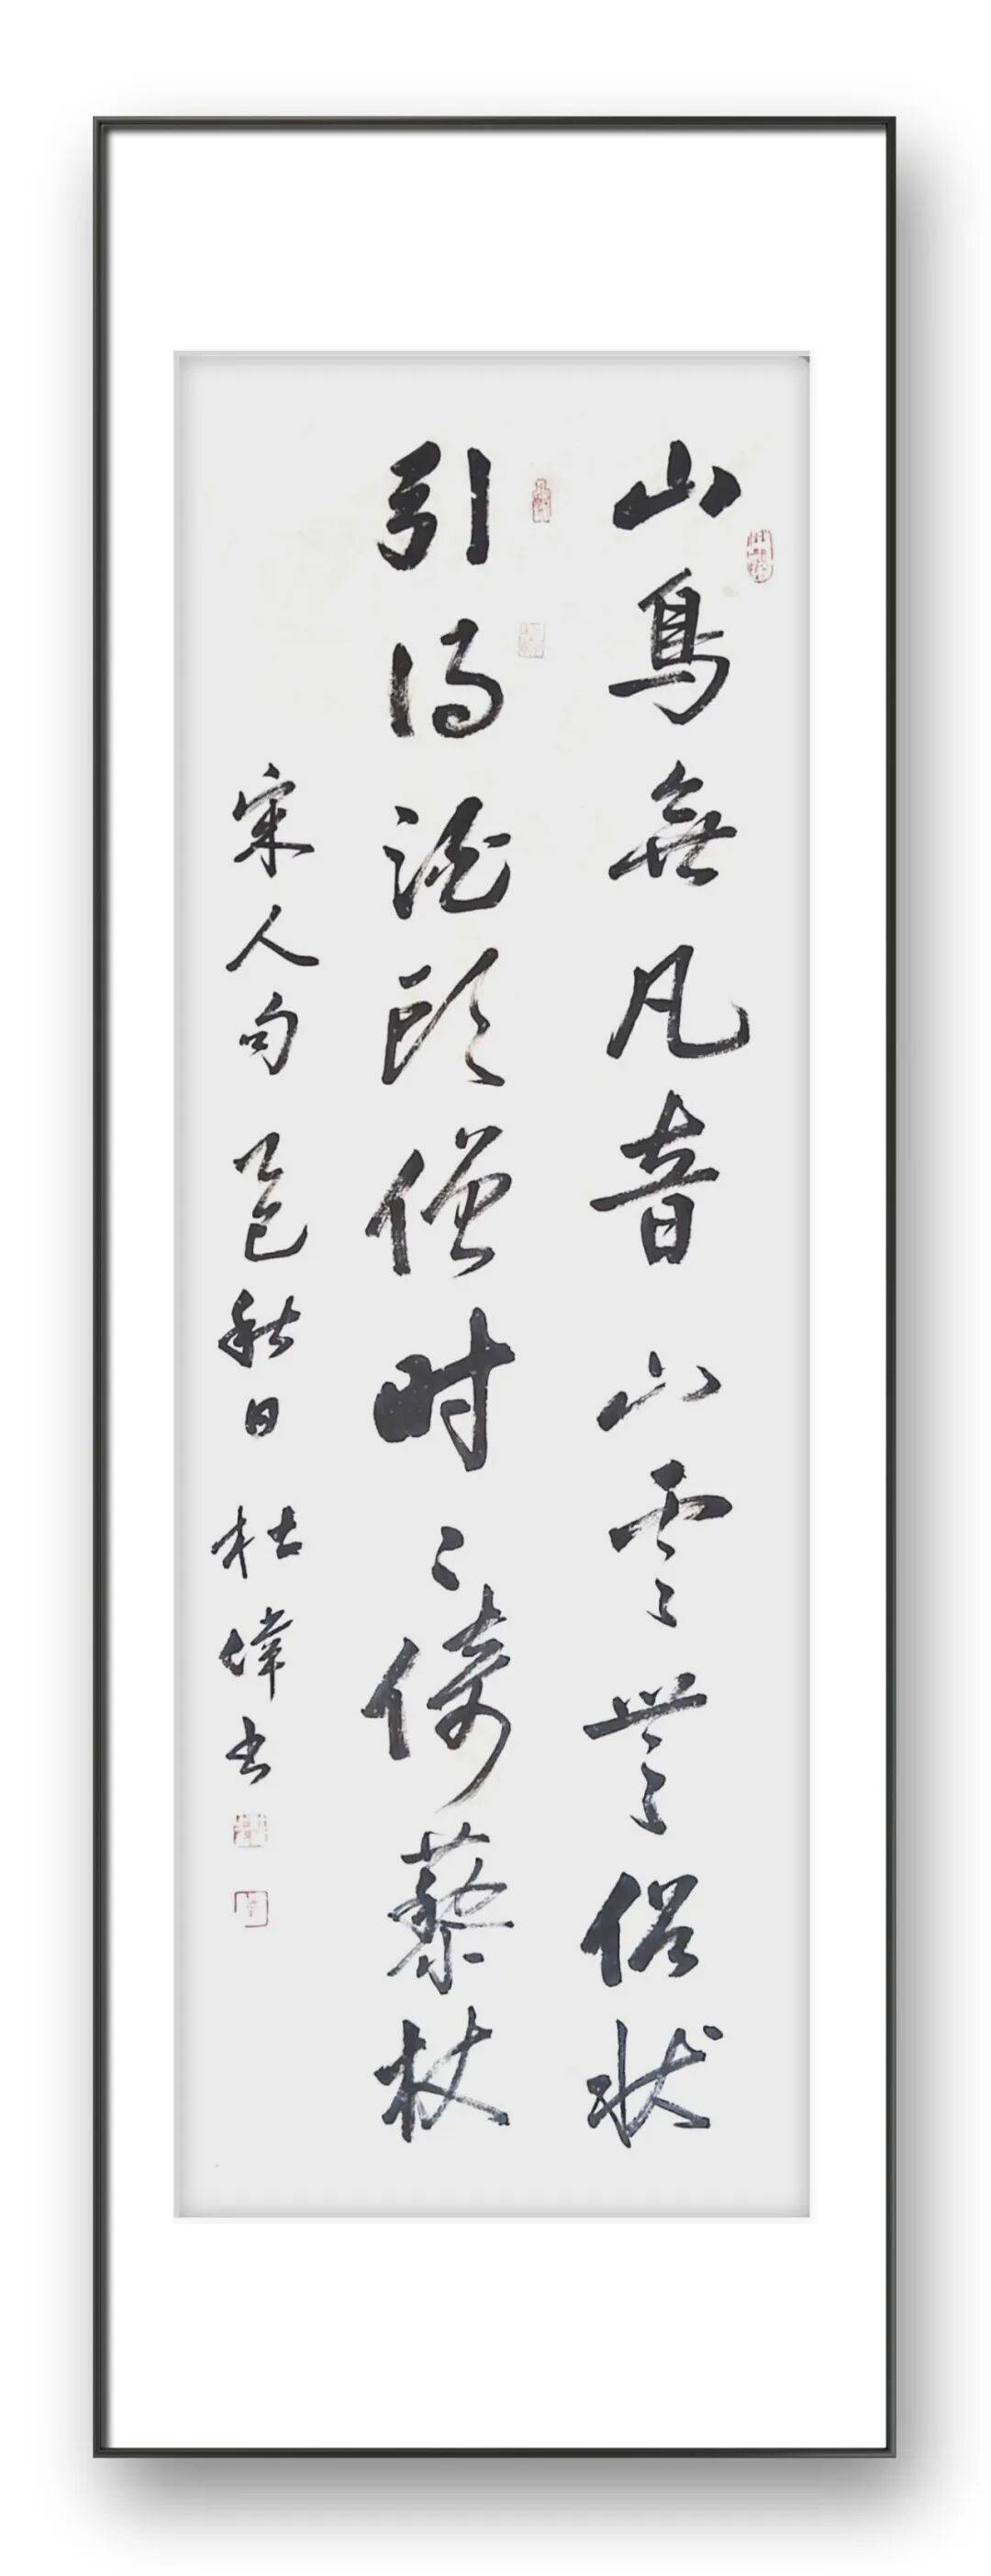 山鳥無凡音山雲無俗状
引得頭僧时々倚藜杖
宋人句乙巳秋日杜偉书